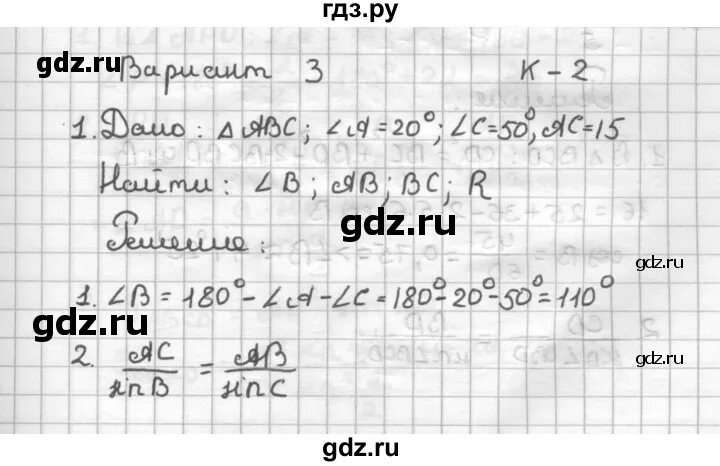 гдз.ру
gdz.ru
Вариант 3 К-2
1. Дано: △ABC; ∠A=20°; ∠C=50°, AC=15
gdz.ru
Найти: ∠B; AB; BC; R
gdz.ru
Решение:
gdz.ru
1. ∠B = 180° - ∠A - ∠C = 180° - 20° - 50° = 110°
gdz.ru
2. AC/sin B = AB/sin C
gdz.ru
gdz.ru